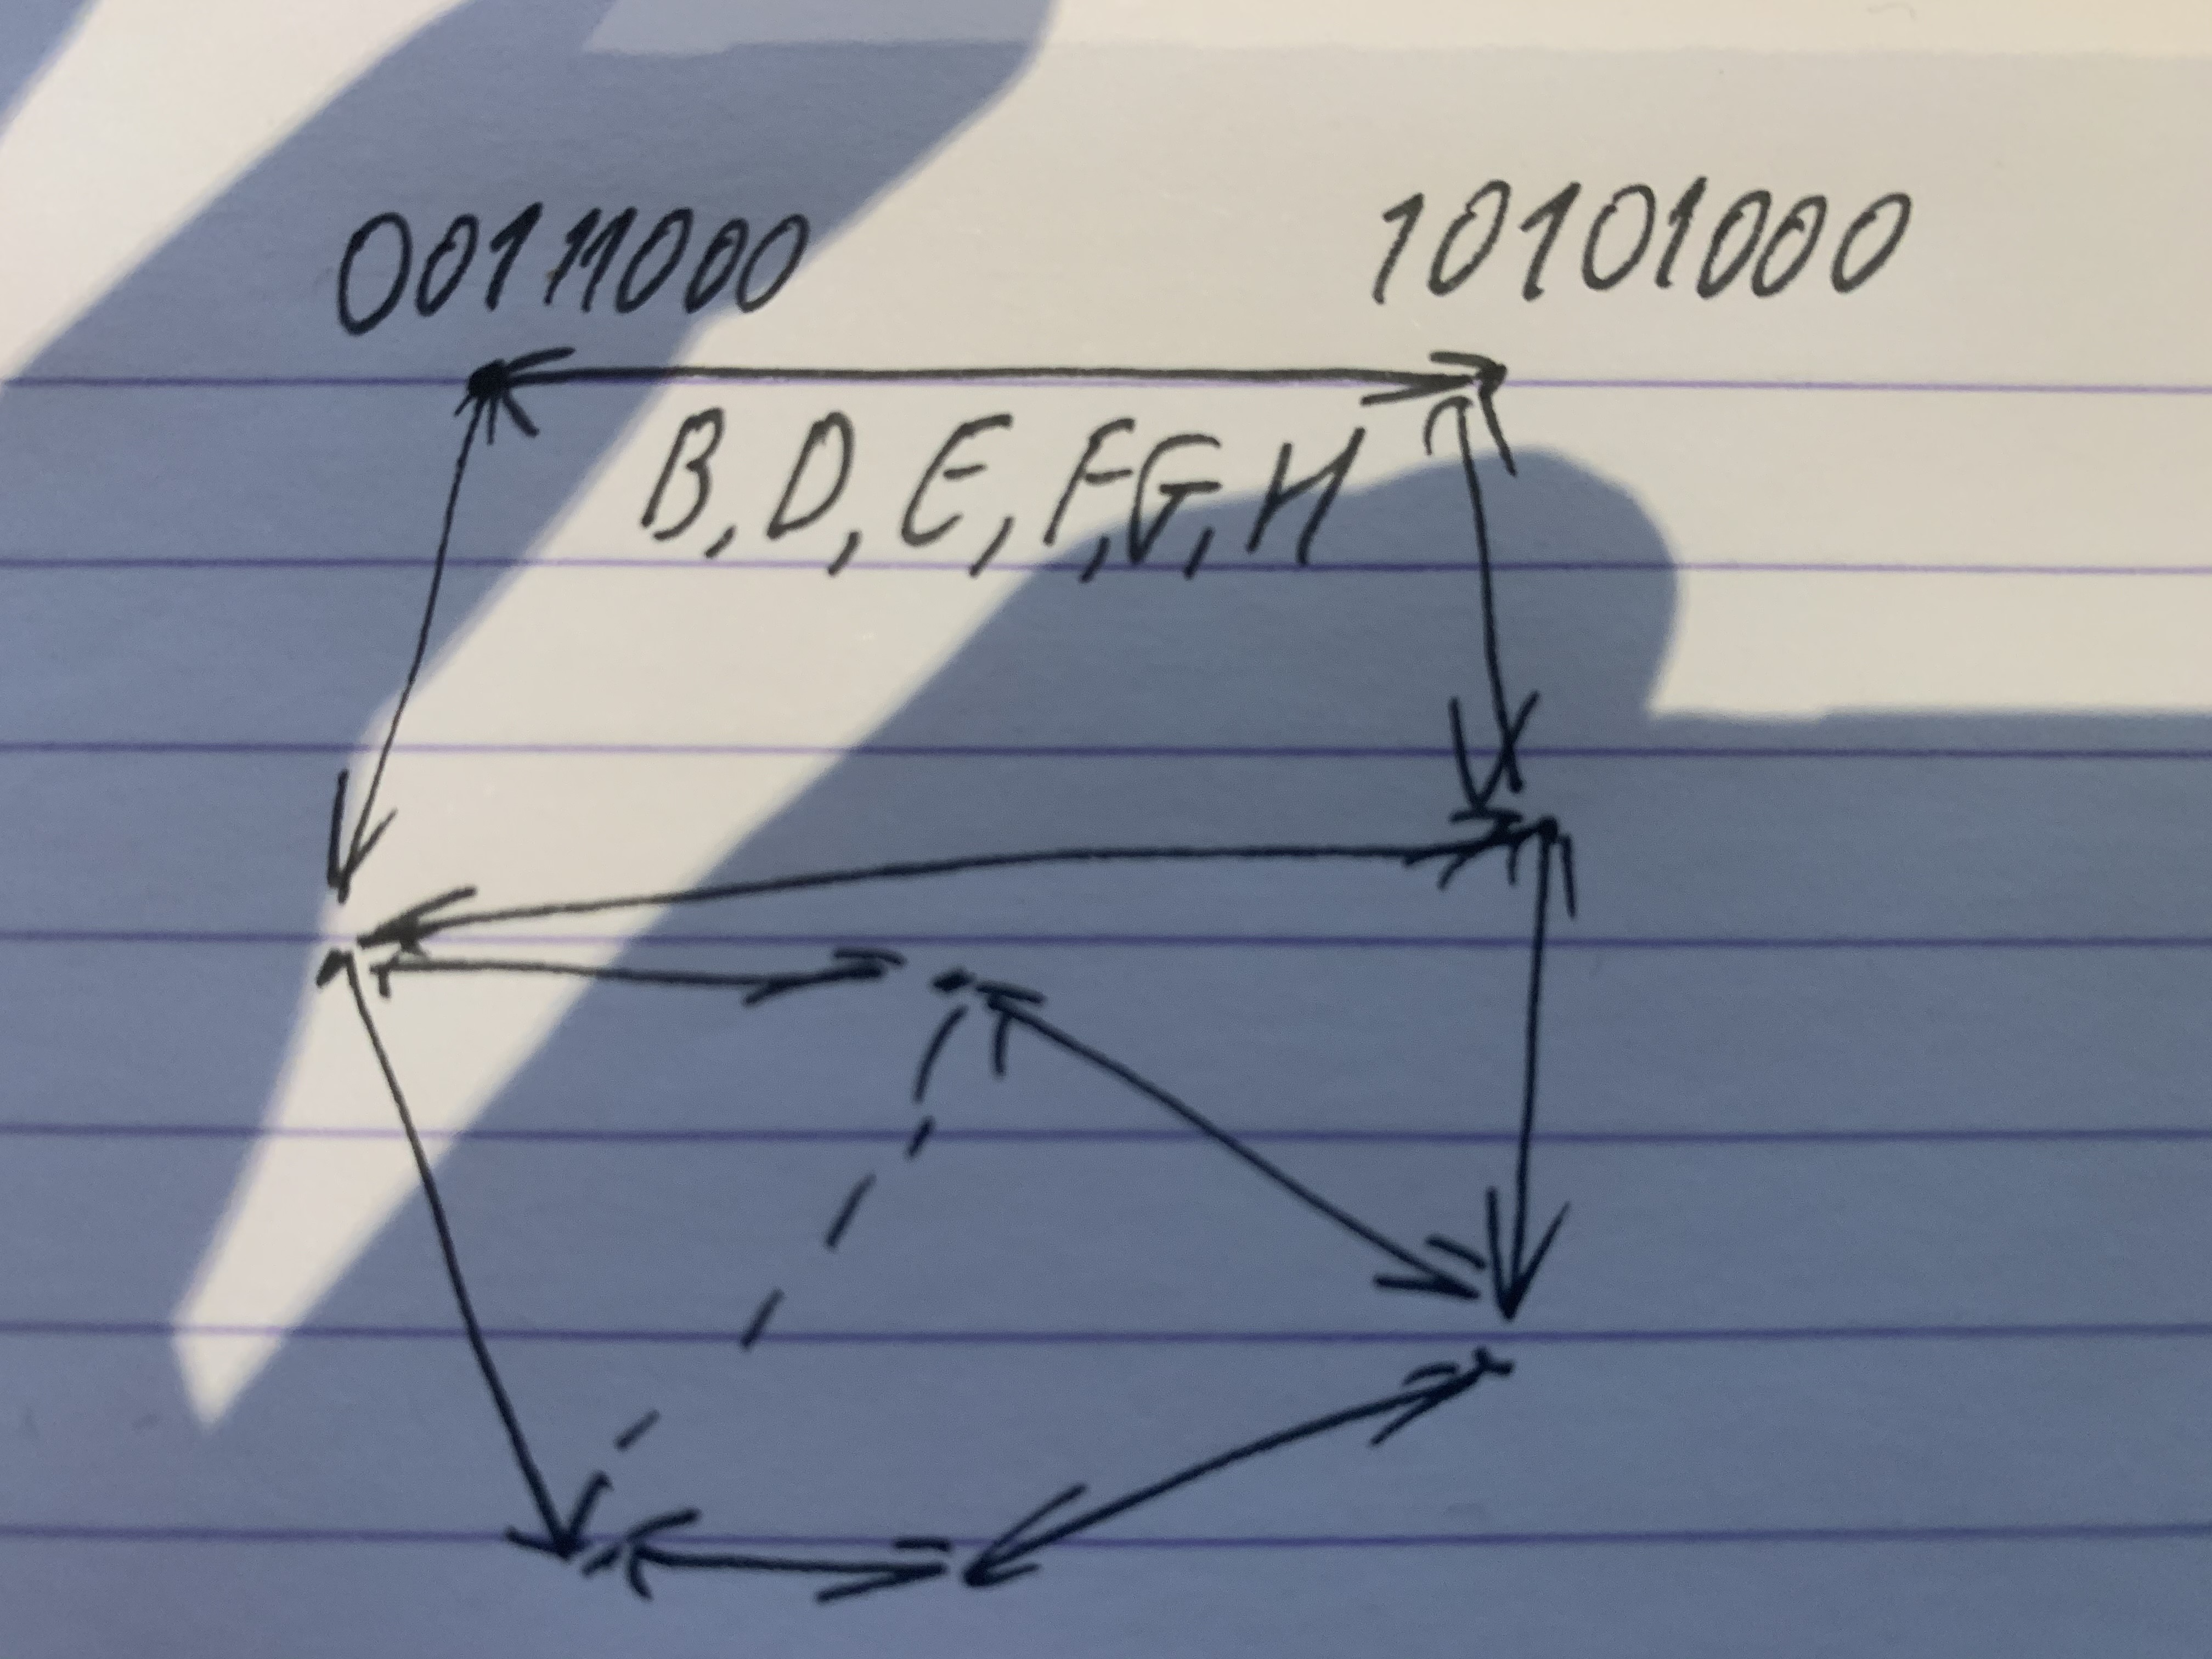 0011000 10101000
B, D, E, F, G, H